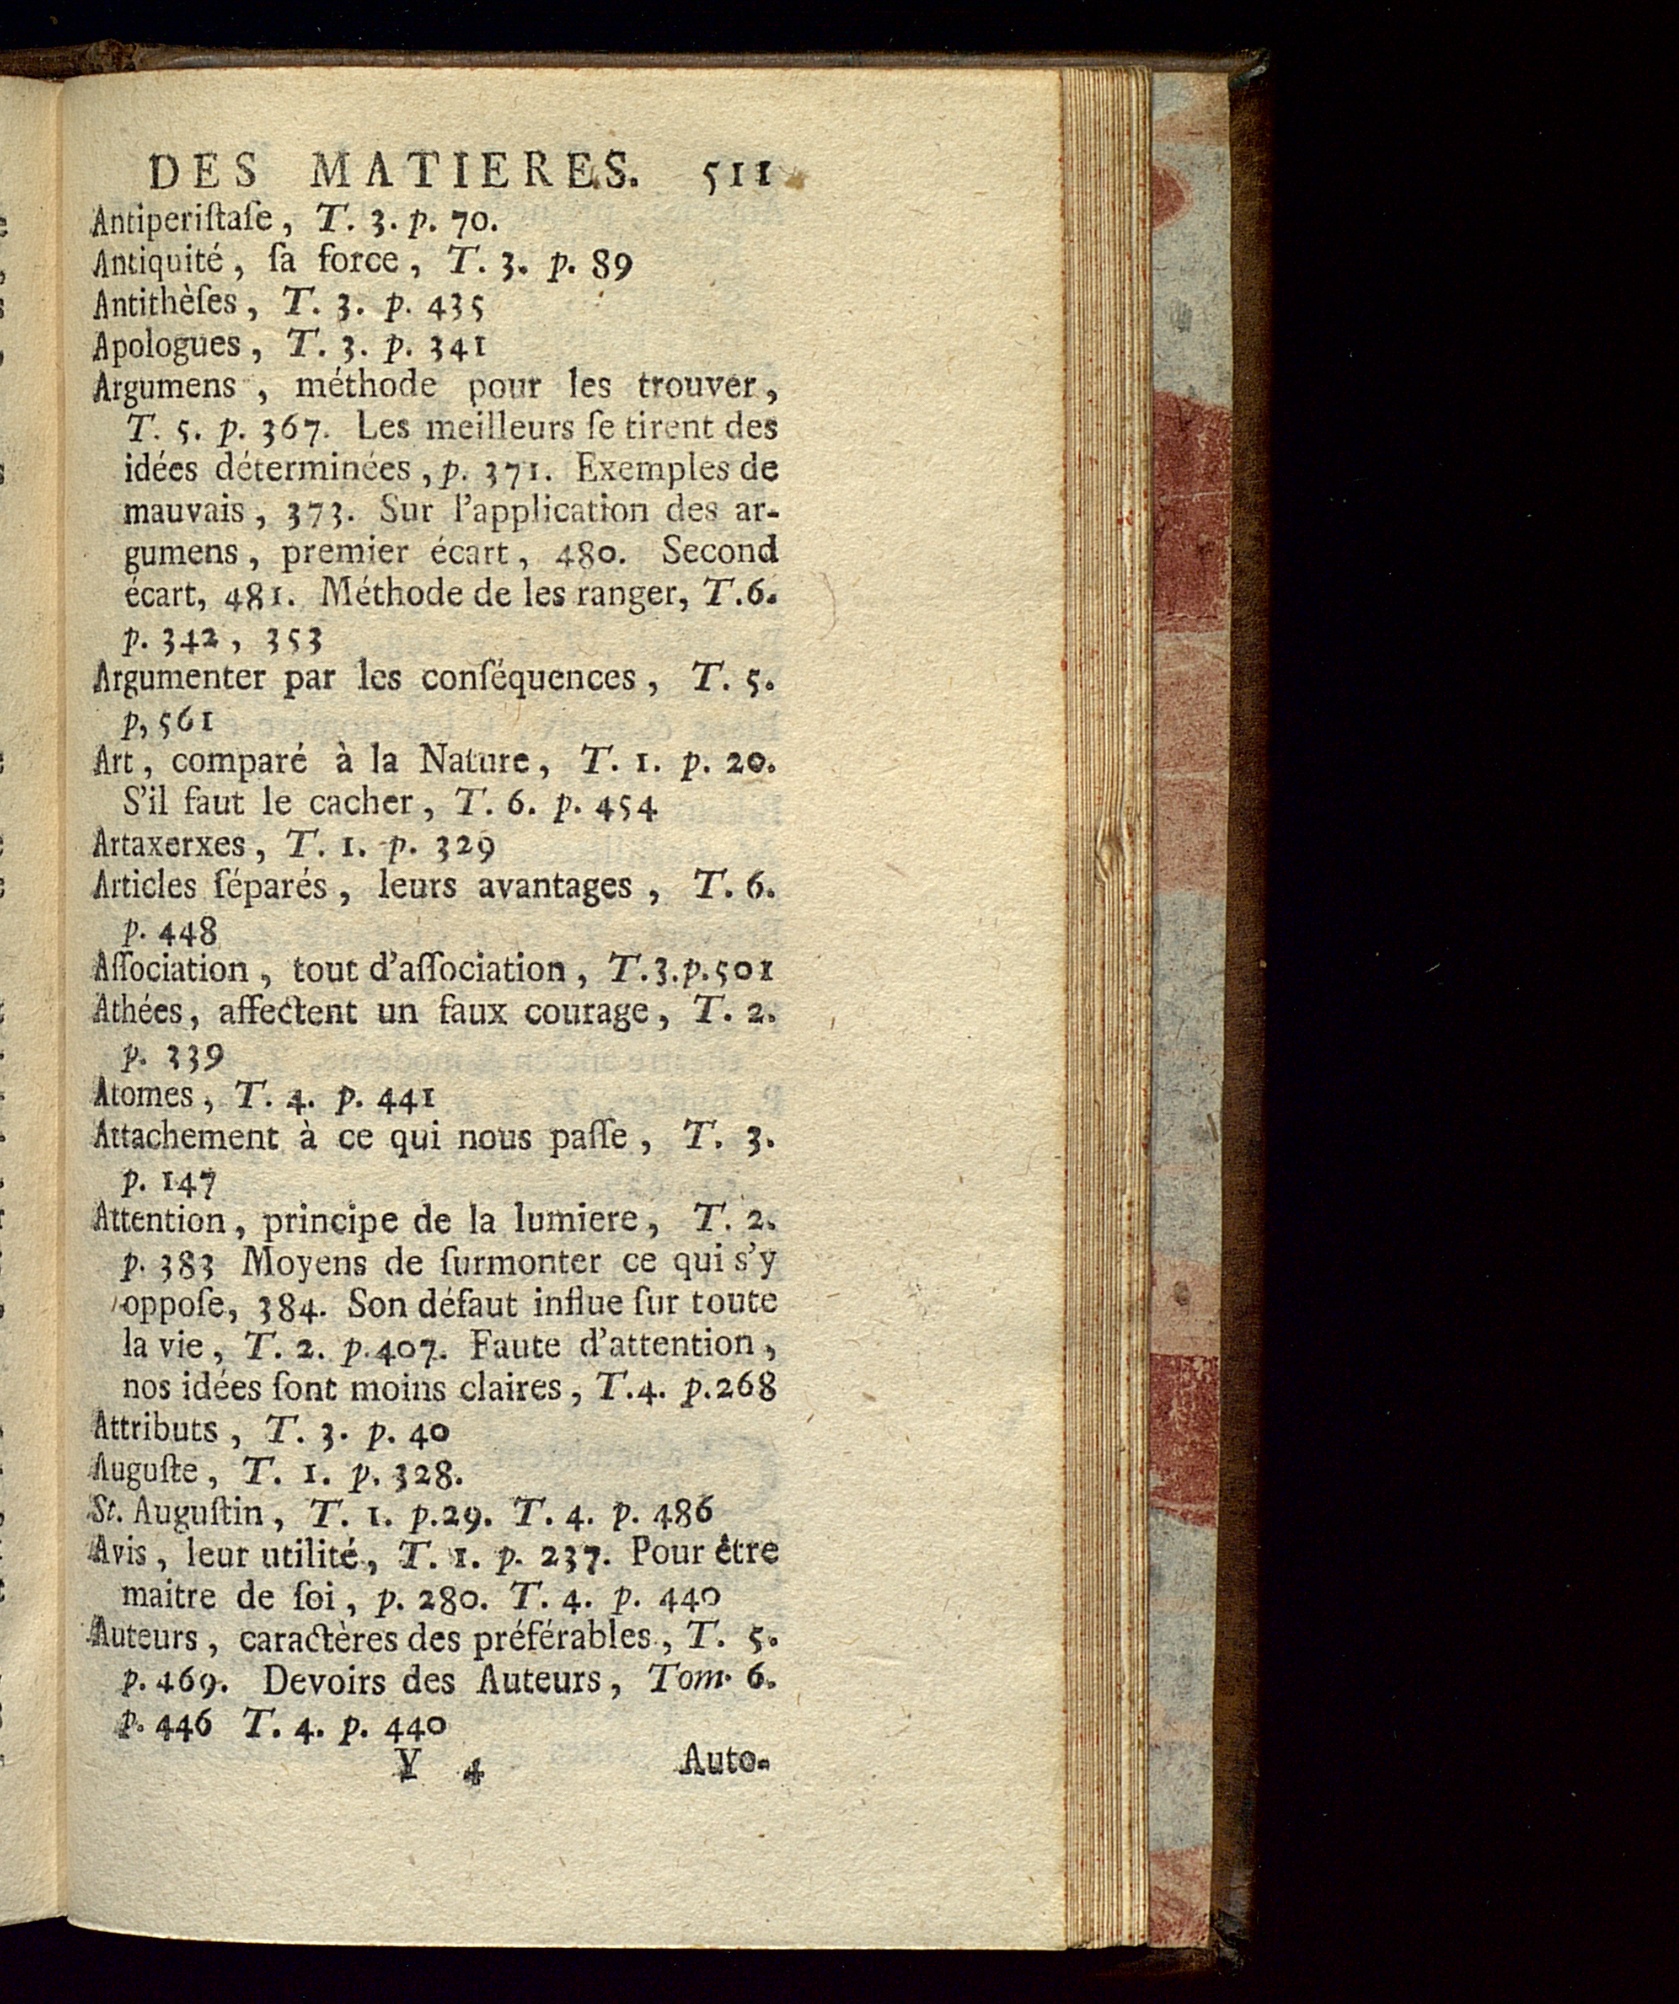 DES MATIERES. 511
Antiperiſtaſe, T. 3. p. 70.
Antiquité, ſa force, T. 3. p. 89
Antithèſes, T. 3. p. 435
Apologues, T. 3. p. 341
Argumens, méthode pour les trouver,
T. 5. p. 367. Les meilleurs ſe tirent des
idées déterminées, p. 371. Exemples de
mauvais, 373. Sur l'application des ar-
gumens, premier écart, 480. Second
écart, 481. Méthode de les ranger, T.6.
p. 342, 353
Argumenter par les conſéquences, T. 5.
p, 561
Art, comparé à la Nature, T. 1. p. 20.
S'il faut le cacher, T. 6. p. 454
Artaxerxes, T. 1. p. 329
Articles ſéparés, leurs avantages, T. 6.
p. 448
Aſſociation, tout d'aſſociation, T.3.p.501
Athées, affectent un faux courage, T. 2.
p. 339
Atomes, T. 4. p. 441
Attachement à ce qui nous paſſe, T. 3.
p. 147
Attention, principe de la lumiere, T. 2.
p. 383 Moyens de ſurmonter ce qui s'y
oppoſe, 384. Son défaut influe ſur toute
la vie, T. 2. p.407. Faute d'attention,
nos idées ſont moins claires, T.4. p.268
Attributs, T. 3. p. 40
Auguſte, T. 1. p. 328.
St. Auguſtin, T. 1. p.29. T. 4. p. 486
Avis, leur utilité, T. 1. p. 237. Pour être
maitre de ſoi, p. 280. T. 4. p. 440
Auteurs, caractères des préférables, T. 5.
p. 469. Devoirs des Auteurs, Tom. 6.
p. 446 T. 4. p. 440
Y 4 Auto-